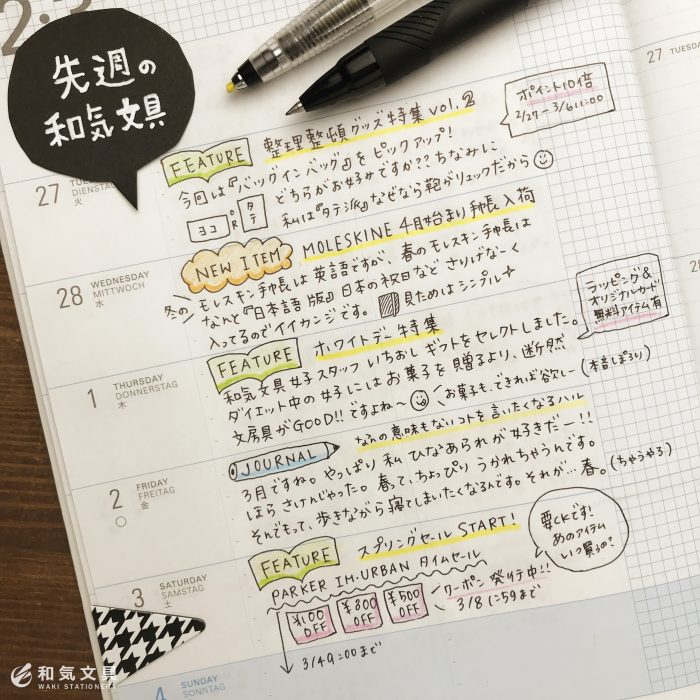 2.3
先週の
和気文具
27 TUESDAY
DIENSTAG
火
FEATURE
整理整頓グッズ特集 vol.2
ポイント10倍
2/27〜3/6 11:00
今回は『バッグインバッグ』をピックアップ!
ヨコ OR タテ どちらがお好みですか?? ちなみに
私は『タテ派』なぜなら鞄がリュックだから
27 TUESDAY
28 WEDNESDAY
MITTWOCH
水
NEW ITEM
MOLESKINE 4月始まり手帳入荷
冬のモレスキン手帳は英語ですが、春のモレスキン手帳は
なんと『日本語版』日本の祝日など さりげなーく
入ってるのでイイカンジです。 見ためはシンプル
ラッピング&
オリジナルカード
無料アイテム有
1 THURSDAY
DONNERSTAG
木
FEATURE
ホワイトデー特集
和気文具女子スタッフいちおし ギフトをセレクトしました。
ダイエット中の女子にはお菓子を贈るより、断然
文房具がGOOD!! ですよね〜 お菓子も、できれば欲しー (本音ぽろり)
2 FRIDAY
FREITAG
金
JOURNAL
なんの意味もないコトを言いたくなるハル
3月ですね。やっぱり私 ひなあられが好きだー!!
ほら さけんじゃった。春って、ちょっぴり うかれちゃうんです。
それでもって、歩きながら寝てしまいたくなるんです。それが…春。(ちゃうやろ)
3 SATURDAY
SAMSTAG
土
FEATURE
スプリングセール START!
要CKです!
あのアイテム
いつ買うの?
PARKER IM・URBAN タイムセール
¥100 OFF
¥300 OFF
¥500 OFF
クーポン発行中!!
3/8 1:59まで
3/4 9:00まで
4 SUNDAY
SONNTAG
和気文具
WAKI STATIONERY